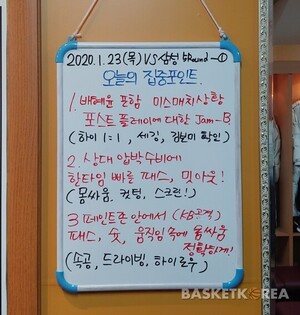 2020.1.23(목) VS 삼성 4Round-①
오늘의 집중포인트
1. 배혜윤 포함 미스매치상황
포스트 플레이에 대한 Jam-B
(하이 1:1, 세깅, 김보미 확인)
2. 상대 압박수비에
한타임 빠른 패스, 밋아웃!
(몸싸움, 컷팅, 스크린!)
3. 페인트존 안에서 (KB공격)
패스, 슛, 움직임 속에 몸싸움
정확하게!
(속공, 드라이빙, 하이로우)
BASKETKOREA